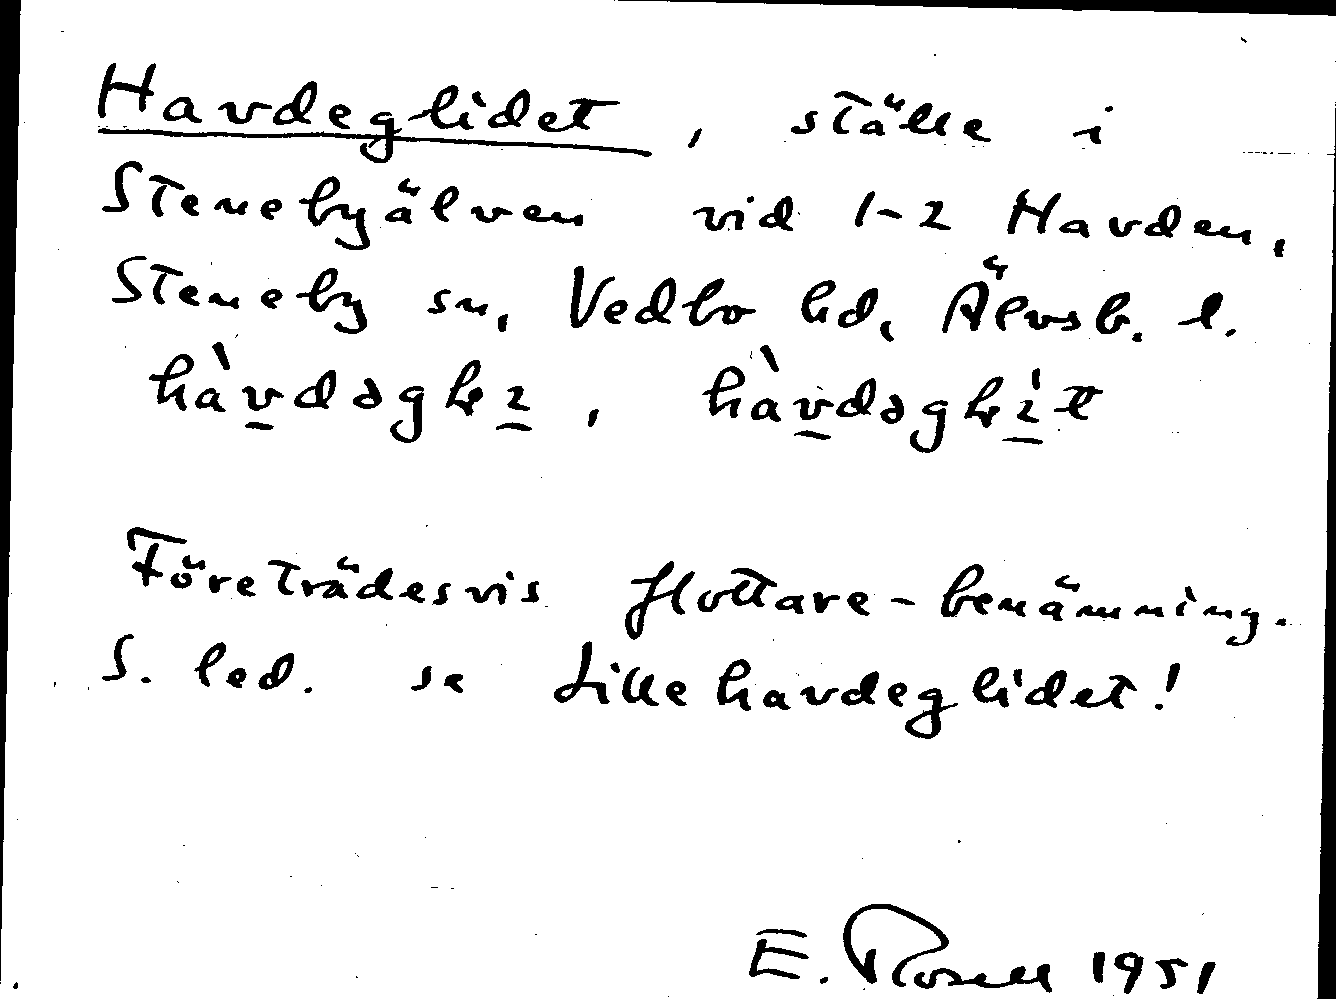 Havdeglidet, ställe i
Stenebyälven vid 1-2 Havden,
Steneby sn, Vedbo hd, Älvsb. l.
Företrädesvis flottare-benämning.
S. led. se Lillehavdeglidet!
E. Rosell 1951